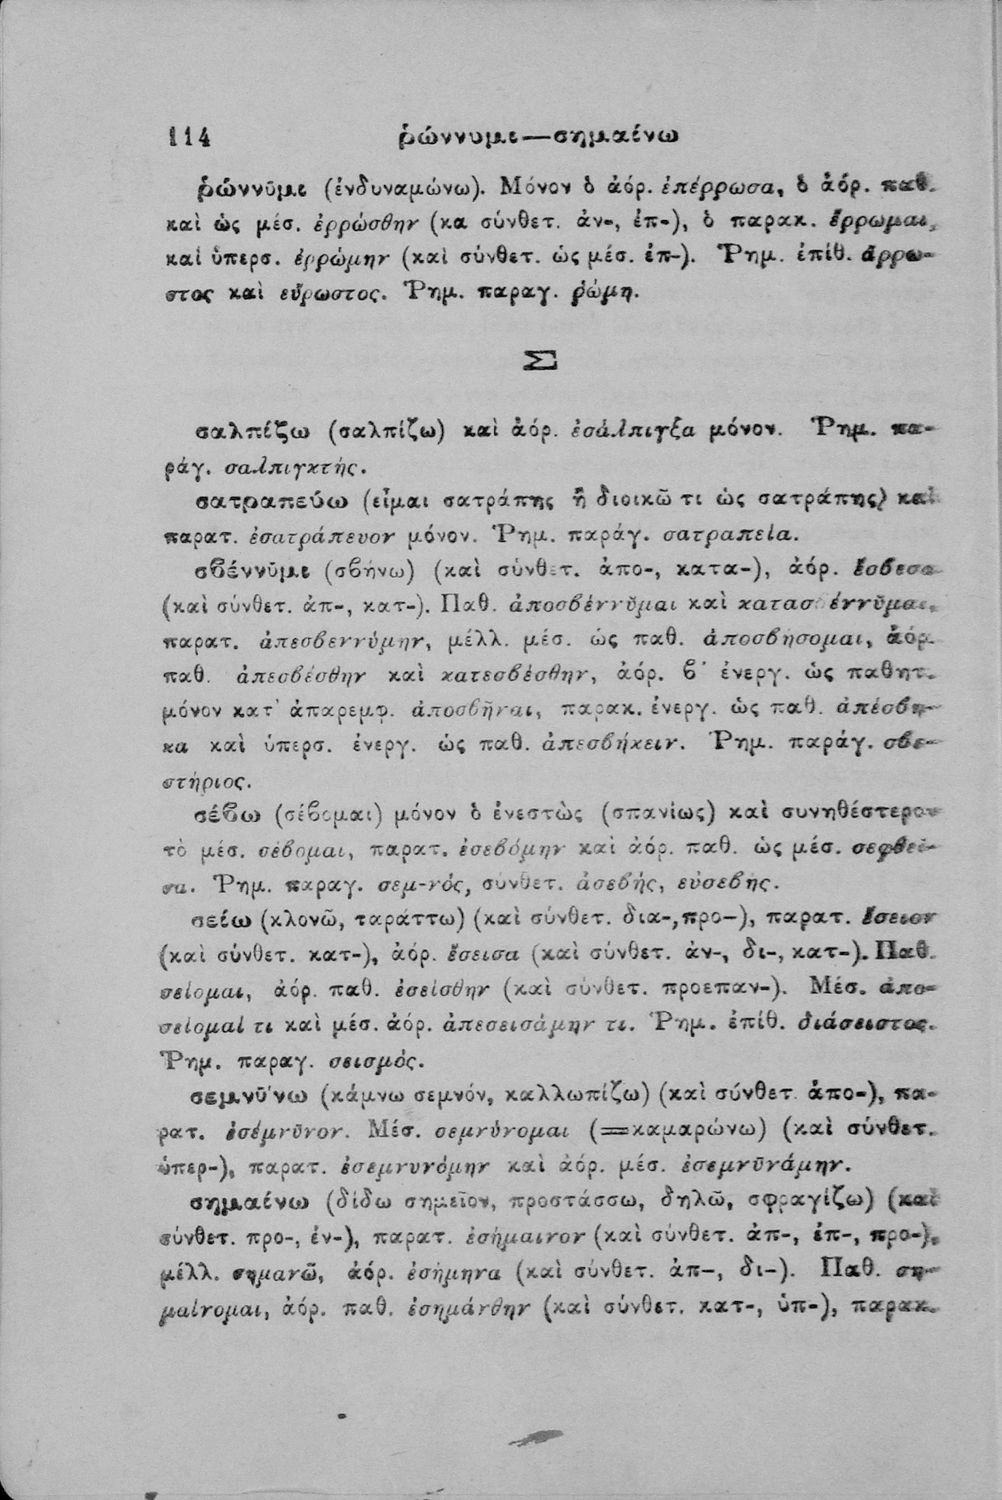 114 ῥώννυμι—σημαίνω
ῥώννῡμι (ἐνδυναμώνω). Μόνον ὁ ἀόρ. ἐπέρρωσα, ὁ ἀόρ. παθ.
καὶ ὡς μέσ. ἐρρώσθην (κα σύνθετ. ἀν-, ἐπ-), ὁ παρακ. ἔρρωμαι,
καὶ ὑπερσ. ἐρρώμην (καὶ σύνθετ. ὡς μέσ. ἐπ-). Ῥημ. ἐπίθ. ἄρρω-
στος καὶ εὔρωστος. Ῥημ. παραγ. ῥώμη.
Σ
σαλπίζω (σαλπίζω) καὶ ἀόρ. ἐσάλπιγξα μόνον. Ῥημ. πα-
ράγ. σαλπιγκτής.
σατραπεύω (εἶμαι σατράπης ἢ διοικῶ τι ὡς σατράπης) καὶ
παρατ. ἐσατράπευον μόνον. Ῥημ. παράγ. σατραπεία.
σϐέννῡμι (σϐήνω) (καὶ σύνθετ. ἀπο-, κατα-), ἀόρ. ἔσϐεσα
(καὶ σύνθετ. ἀπ-, κατ-). Παθ. ἀποσϐέννῠμαι καὶ κατασϐέννῠμαι,
παρατ. ἀπεσϐεννύμην, μέλλ. μέσ. ὡς παθ. ἀποσϐήσομαι, ἀόρ.
παθ. ἀπεσϐέσθην καὶ κατεσϐέσθην, ἀόρ. ϐ΄ ἐνεργ. ὡς παθητ.
μόνον κατ' ἀπαρεμφ. ἀποσϐῆναι, παρακ. ἐνεργ. ὡς παθ. ἀπέσϐη-
κα καὶ ὑπερσ. ἐνεργ. ὡς παθ. ἀπεσϐήκειν. Ῥημ. παράγ. σϐε-
στήριος.
σέϐω (σέϐομαι) μόνον ὁ ἐνεστὼς (σπανίως) καὶ συνηθέστερον
τὸ μέσ. σέϐομαι, παρατ. ἐσεϐόμην καὶ ἀόρ. παθ. ὡς μέσ. σεφθεῖ-
σα. Ῥημ. παραγ. σεμ-νός, σύνθετ. ἀσεϐής, εὐσεϐής.
σείω (κλονῶ, ταράττω) (καὶ σύνθετ. δια-,προ-), παρατ. ἔσειον
(καὶ σύνθετ. κατ-), ἀόρ. ἔσεισα (καὶ σύνθετ. ἀν-, δι-, κατ-). Παθ.
σείομαι, ἀόρ. παθ. ἐσείσθην (καὶ σύνθετ. προεπαν-). Μέσ. ἀπο-
σείομαί τι καὶ μέσ. ἀόρ. ἀπεσεισάμην τι. Ῥημ. ἐπίθ. διάσειστος.
Ῥημ. παραγ. σεισμός.
σεμνῡ́νω (κάμνω σεμνόν, καλλωπίζω) (καὶ σύνθετ. ἀπο-), πα-
ρατ. ἐσέμνῡνον. Μέσ. σεμνύνομαι (=καμαρώνω) (καὶ σύνθετ.
ὑπερ-), παρατ. ἐσεμνυνόμην καὶ ἀόρ. μέσ. ἐσεμνῡνάμην.
σημαίνω (δίδω σημεῖον, προστάσσω, δηλῶ, σφραγίζω) (καὶ
σύνθετ. προ-, ἐν-), παρατ. ἐσήμαινον (καὶ σύνθετ. ἀπ-, ἐπ-, προ-),
μέλλ. σημανῶ, ἀόρ. ἐσήμηνα (καὶ σύνθετ. ἀπ-, δι-). Παθ. ση-
μαίνομαι, ἀόρ. παθ. ἐσημάνθην (καὶ σύνθετ. κατ-, ὑπ-), παρακ.